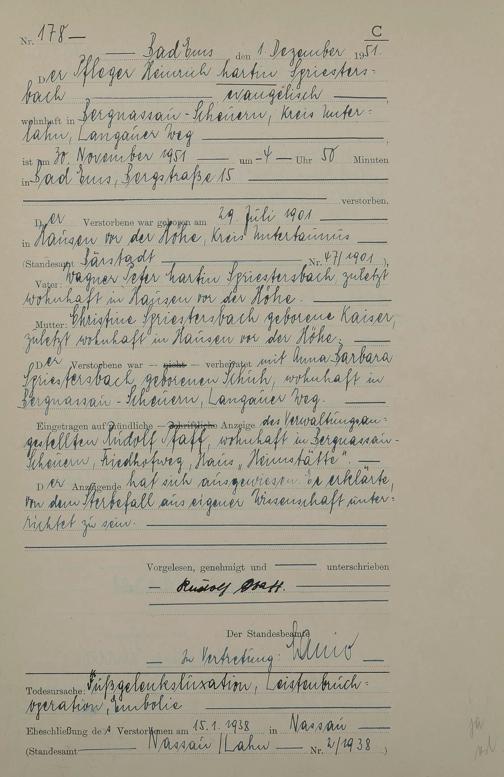 C
Nr. 178
Bad Ems, den 1. Dezember 1951.
Der Pfleger Heinrich Martin Spriesters-
bach evangelisch
wohnhaft in Bergnassau-Scheuern, Kreis Unter-
lahn, Langauer Weg
ist am 30. November 1951 um 4 Uhr 50 Minuten
in Bad Ems, Bergstraße 15
verstorben.
Der Verstorbene war geboren am 29. Juli 1901
in Hausen vor der Höhe, Kreis Untertaunus
(Standesamt Bärstadt Nr. 47/1901.)
Vater: Wagner Peter Martin Spriestersbach, zuletzt
wohnhaft in Hausen vor der Höhe.
Mutter: Christine Spriestersbach geborene Kaiser,
zuletzt wohnhaft in Hausen vor der Höhe.
Der Verstorbene war — nicht — verheiratet mit Anna Barbara
Spriestersbach, geborenen Schuh, wohnhaft in
Bergnassau-Scheuern, Langauer Weg.
Eingetragen auf mündliche — Schriftliche Anzeige des Verwaltungsan-
gestellten Rudolf Pfaff, wohnhaft in Bergnassau-
Scheuern, Friedhofweg, Haus „Heimstätte"
Der Anzeigende hat sich ausgewiesen. Er erklärte,
von dem Sterbefall aus eigener Wissenschaft unter-
richtet zu sein.
Vorgelesen, genehmigt und unterschrieben
Rudolf Pfaff.
Der Standesbeamte
In Vertretung:
Todesursache: Fußgelenksluxation, Leistenbruch-
operation, Embolie
Eheschließung des Verstorbenen am 15.1.1938 in Nassau
(Standesamt Nassau/Lahn Nr. 2/1938)